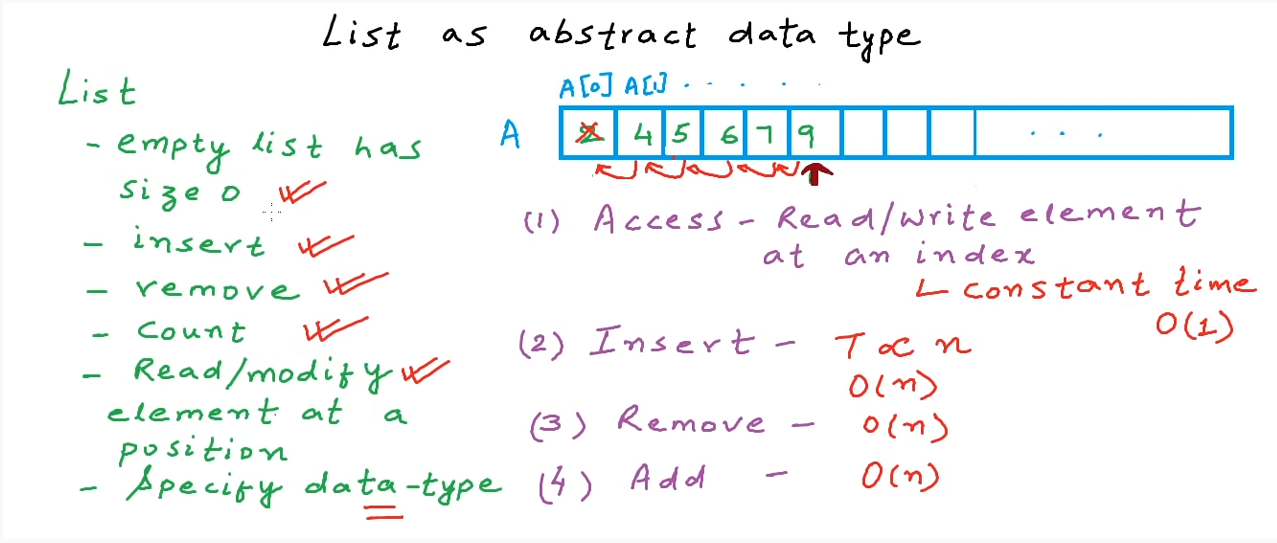 List as abstract data type
List
- empty list has
size 0
- insert
- remove
- count
- Read/modify
element at a
position
- Specify data-type
A[0] A[1] . . . .
A 2 4 5 6 7 9 . . .
(1) Access - Read/write element
at an index
constant time
O(1)
(2) Insert - T ∝ n
O(n)
(3) Remove - O(n)
(4) Add - O(n)